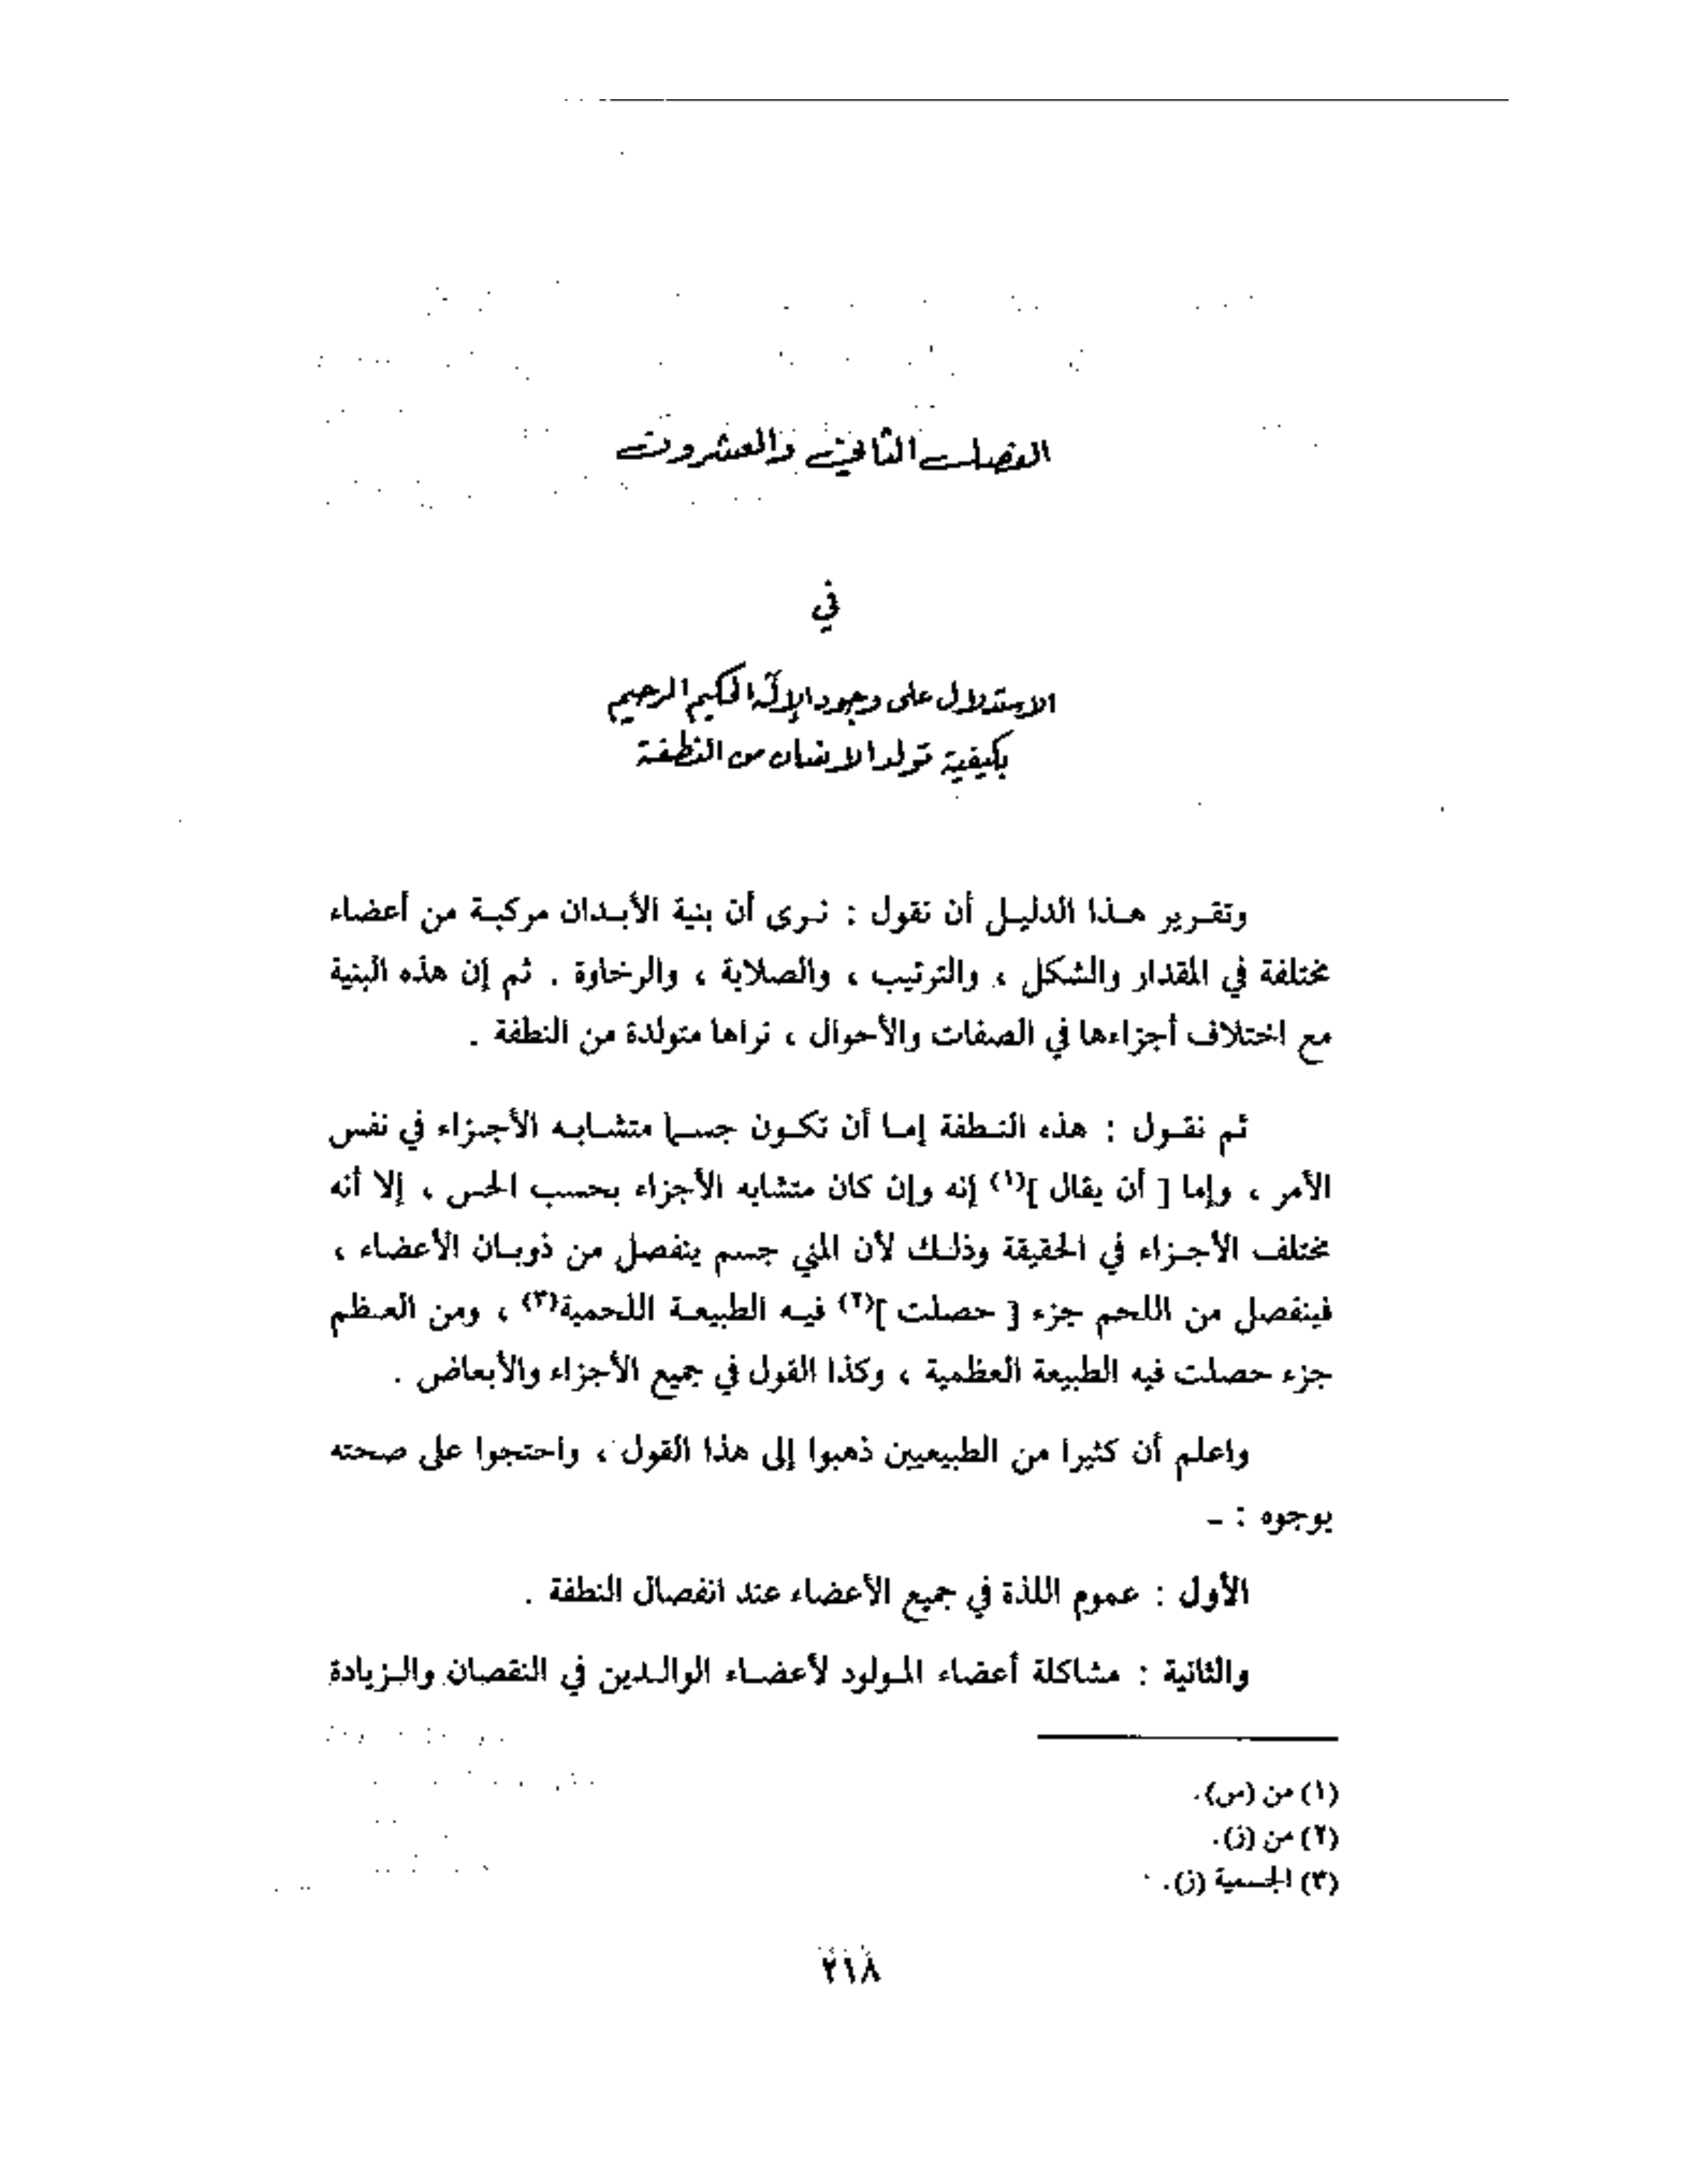 الفصل الثاني والعشرون
في
الاستدلال على وجود الإله الحكيم الرحيم
بكيفية تولد الانسان من النطفة
وتقرير هذا الدليل أن نقول : نرى أن بنية الأبدان مركبة من أعضاء
مختلفة في المقدار والشكل ، والترتيب ، والصلابة ، والرخاوة . ثم إن هذه البنية
مع اختلاف أجزاءها في الصفات والأحوال ، نراها متولدة من النطفة .
ثم نقول : هذه النطفة إما أن تكون جسما متشابه الأجزاء في نفس
الأمر ، وإما [ أن يقال ](١) إنه وإن كان متشابه الأجزاء بحسب الحس ، إلا أنه
مختلف الأجزاء في الحقيقة وذلك لأن المني جسم ينفصل من ذوبان الأعضاء ،
فينفصل من اللحم جزء [ حصلت ](٢) فيه الطبيعة اللحمية(٣) ، ومن العظم
جزء حصلت فيه الطبيعة العظمية ، وكذا القول في جميع الأجزاء والأبعاض .
واعلم أن كثيرا من الطبيعيين ذهبوا إلى هذا القول ، واحتجوا على صحته
بوجوه : -
الأول : عموم اللذة في جميع الأعضاء عند انفصال النطفة .
والثانية : مشاكلة أعضاء المولود لأعضاء الوالدين في النقصان والزيادة
(١) من (س).
(٢) من (ز).
(٣) الجسمية (ز).
٢١٨